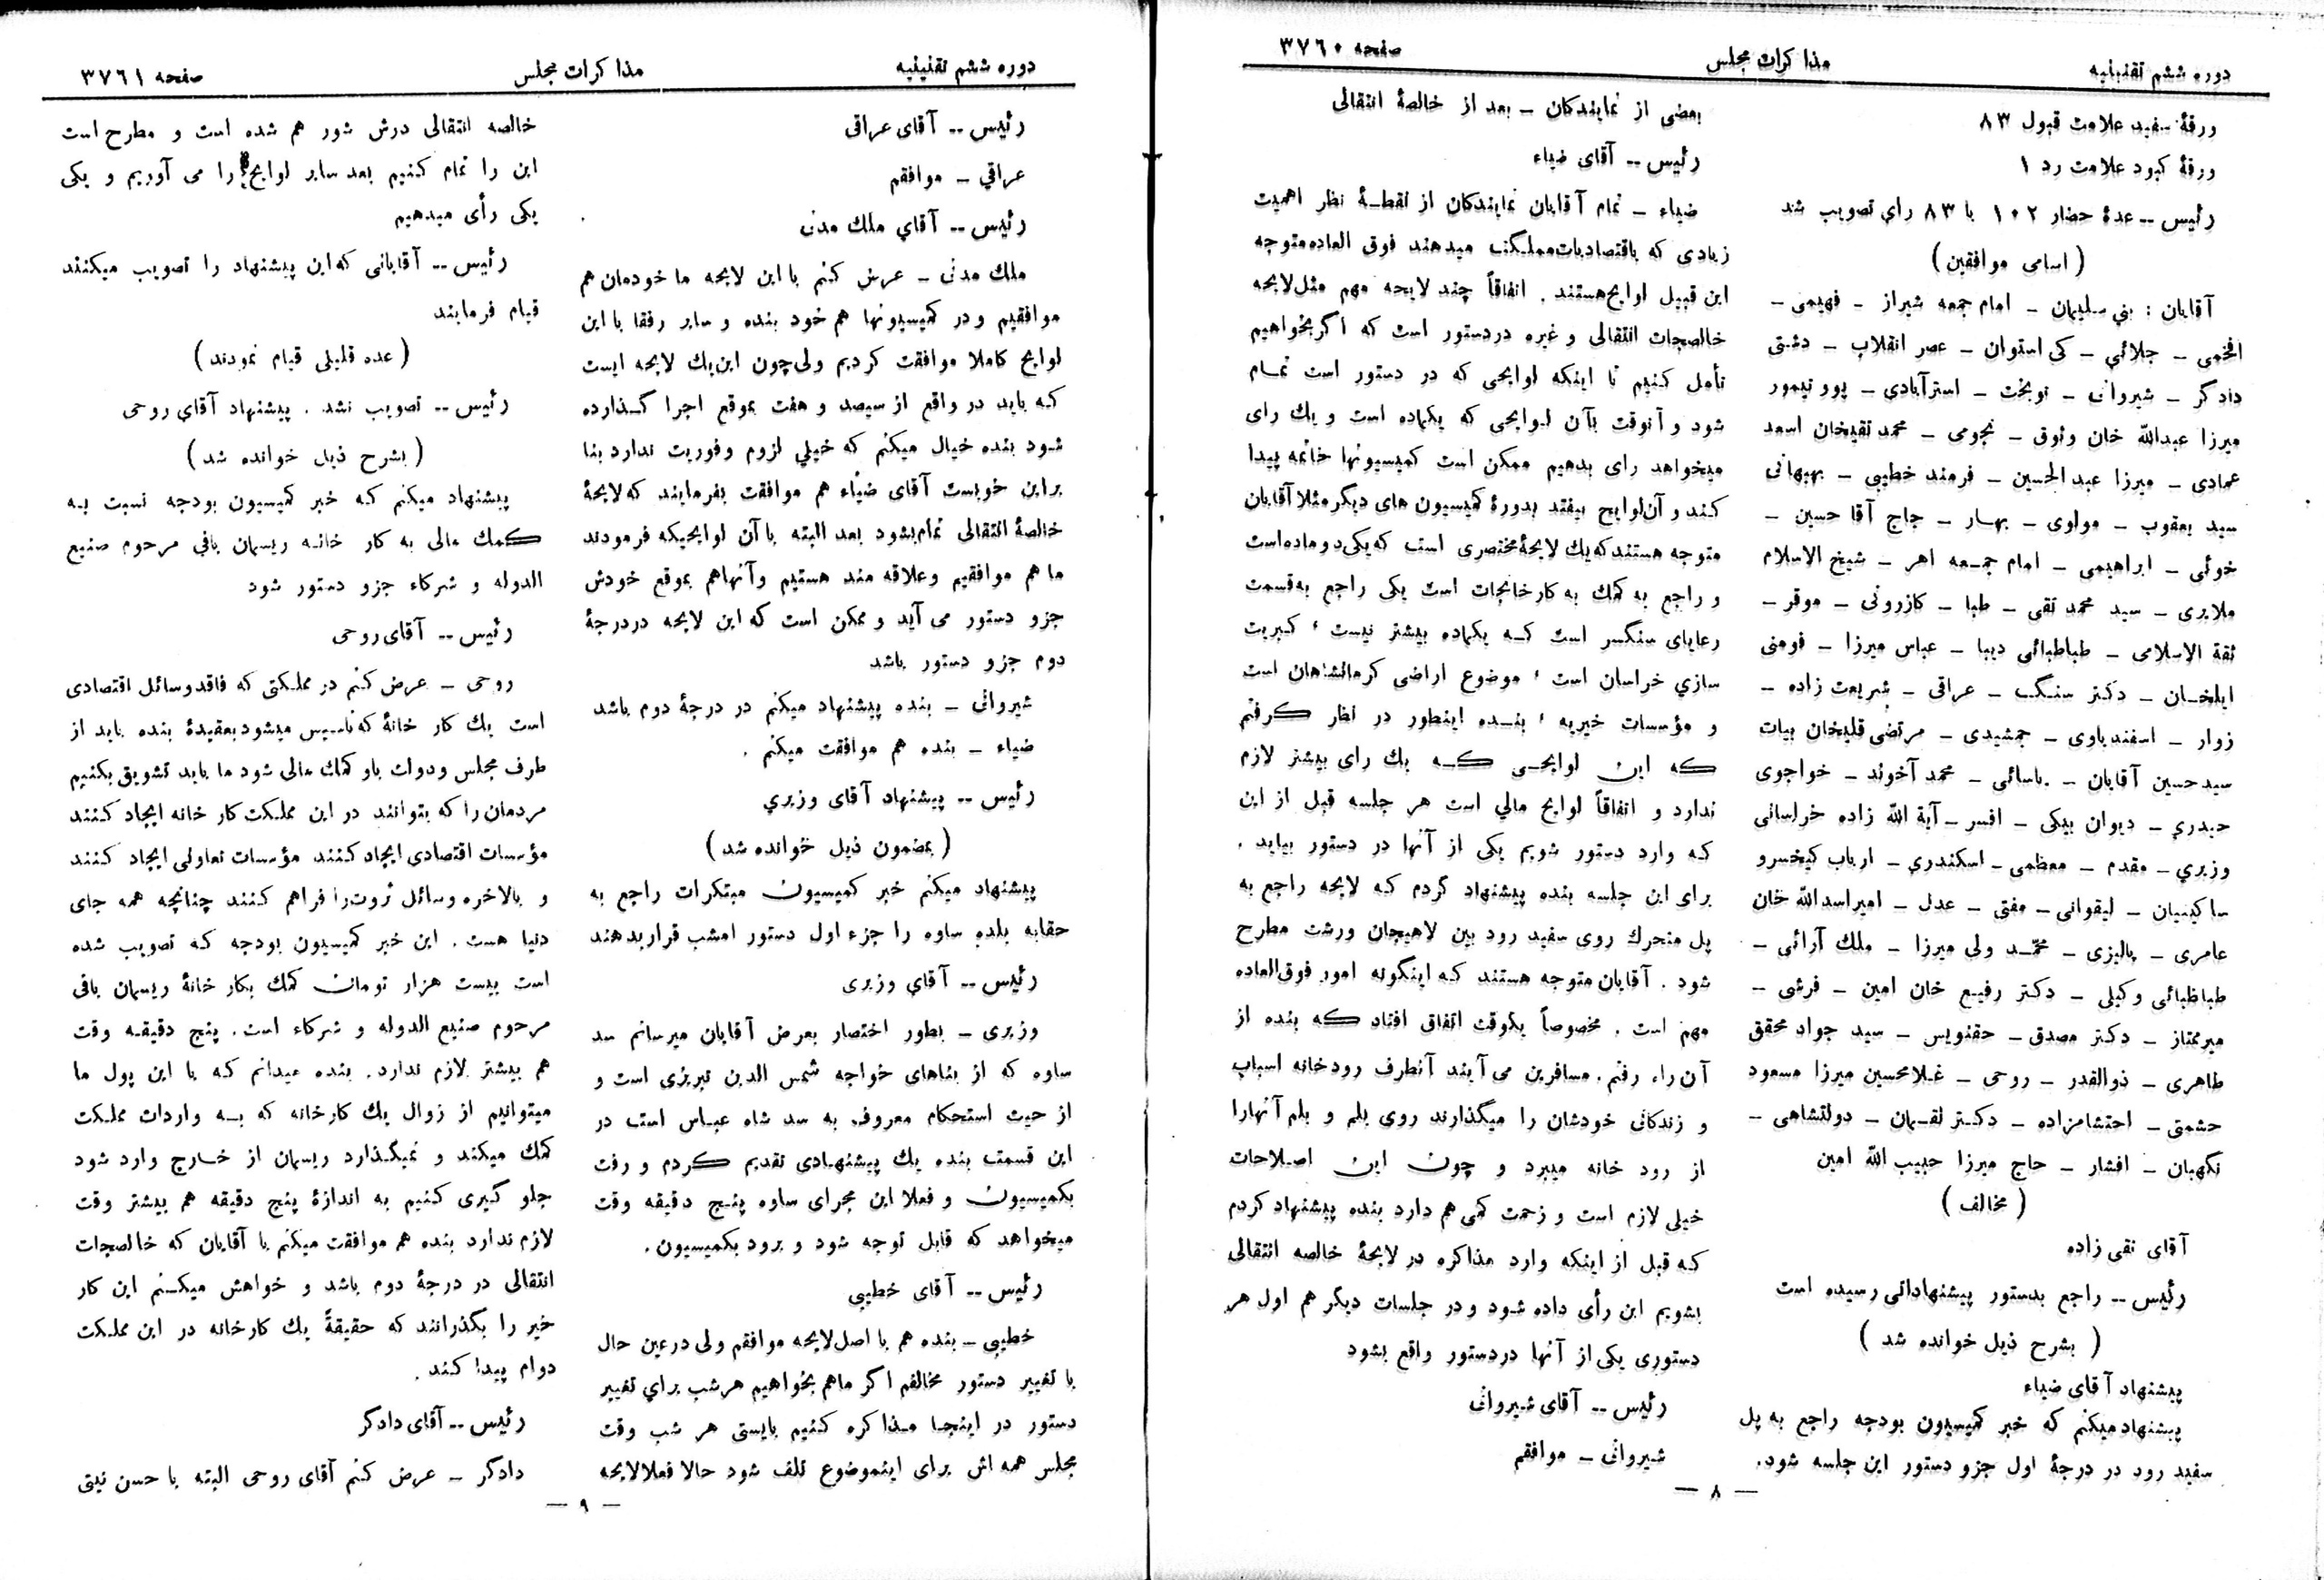 دوره ششم تقنینیه
مذاکرات مجلس
صفحه ۳۷۶۰
ورقهٔ سفید علامت قبول ۸۳
ورقهٔ کبود علامت رد ۱
رئیس -- عدهٔ حضار ۱۰۲ با ۸۳ رأی تصویب شد
( اسامی موافقین )
آقایان : بني سلیمان - امام جمعه شیراز - فهیمی -
افخمی - جلائي - کی استوان - عصر انقلاب - دشتی
دادگر - شیروانی - نوبخت - استرآبادی - پورتیمور
میرزا عبدالله خان وثوق - نجومی - محمد تقیخان اسعد
عمادی - میرزا عبدالحسین - فرمند خطیبی - بهبهانی
سید یعقوب - مولوی - بهار - حاج آقا حسین -
خوئی - ابراهیمی - امام جمعه اهر - شیخ الاسلام
ملایری - سید محمد تقی - طبا - کازرونی - موقر -
ثقة الاسلامی - طباطبائی دیبا - عباس میرزا - فومنی
ایلخان - دکتر سنگ - عراقی - شریعت زاده -
زوار - اسفندیاری - جمشیدی - مرتضی قلیخان بیات
سید حسین آقایان - یاسائی - محمد آخوند - خواجوی
حیدري - دیوان بیکی - افسر - آیة الله زاده خراسانی
وزیري - مقدم - معظمی - اسکندري - ارباب کیخسرو
ساکینیان - لیقوانی - مفتی - عدل - امیر اسدالله خان
عامری - پالیزی - محمد ولی میرزا - ملك آرائی -
طباطبائی وکیلی - دکتر رفیع خان امین - فرشی -
میرممتاز - دکتر مصدق - حقنویس - سید جواد محقق
طاهری - ذوالقدر - روحی - غلامحسین میرزا مسعود
حشمتی - احتشامزاده - دکتر لقمان - دولتشاهی -
نگهبان - افشار - حاج میرزا حبیب الله امین
( مخالف )
آقای تقی زاده
رئیس -- راجع بدستور پیشنهاداتی رسیده است
( بشرح ذیل خوانده شد )
پیشنهاد آقای ضیاء
پیشنهاد میکنم که خبر کمیسیون بودجه راجع به پل
سفید رود در درجهٔ اول جزو دستور این جلسه شود.
بعضی از نمایندکان - بعد از خالصهٔ انتقالی
رئیس -- آقای ضیاء
ضیاء - تمام آقایان نمایندکان از نقطهٔ نظر اهمیت
زیادی که باقتصادیات مملکت میدهند فوق العاده متوجه
این قبیل لوایح هستند . اتفاقاً چند لایحه مهم مثل لایحه
خالصجات انتقالی و غیره در دستور است که اگر بخواهیم
تأمل کنیم تا اینکه لوایحی که در دستور است تمام
شود و آنوقت بآن لوایحی که یکماده است و یك رای
میخواهد رای بدهیم ممکن است کمیسیونها خاتمه پیدا
کند و آن لوایح بیفتد بدورهٔ کمیسیون های دیگر مثلا آقایان
متوجه هستند که یك لایحهٔ مختصری است که یکی دو ماده است
و راجع به کمك به کارخانجات است یکی راجع به قسمت
رعایای سنگسر است که یکماده بیشتر نیست ، کبریت
سازي خراسان است ، موضوع اراضی کرمانشاهان است
و مؤسسات خیریه ، بنده اینطور در نظر گرفتم
که این لوایحی که یك رای بیشتر لازم
ندارد و اتفاقاً لوایح مالي است هر جلسه قبل از این
که وارد دستور شویم یکی از آنها در دستور بیاید .
برای این جلسه بنده پیشنهاد کردم که لایحه راجع به
پل متحرك روی سفید رود بین لاهیجان و رشت مطرح
شود . آقایان متوجه هستند که اینگونه امور فوق العاده
مهم است . مخصوصاً یکوقت اتفاقی افتاد که بنده از
آن راه رفتم . مسافرین می آیند آنطرف رودخانه اسباب
و زندگانی خودشان را میگذارند روی بلم و بلم آنها را
از رود خانه میبرد و چون این اصلاحات
خیلی لازم است و زحمت کمی هم دارد بنده پیشنهاد کردم
که قبل از اینکه وارد مذاکره در لایحهٔ خالصه انتقالی
بشویم این رأی داده شود و در جلسات دیگر هم اول هر
دستوری یکی از آنها در دستور واقع بشود
رئیس -- آقای شیروانی
شیروانی - موافقم
— ۸ —
دوره ششم تقنینیه
مذاکرات مجلس
صفحه ۳۷۶۱
رئیس -- آقای عراقی
عراقي - موافقم
رئیس -- آقاي ملك مدنی
ملك مدنی - عرض کنم با این لایحه ما خودمان هم
موافقیم و در کمیسیونها هم خود بنده و سایر رفقا با این
لوایح کاملا موافقت کردیم ولی چون این یك لایحه ایست
که باید در واقع از سیصد و هفت بموقع اجرا گذارده
شود بنده خیال میکنم که خیلي لزوم و فوریت ندارد بنا
براین خوبست آقای ضیاء هم موافقت بفرمایند که لایحهٔ
خالصهٔ انتقالی تمام بشود بعد البته با آن لوایحیکه فرمودند
ما هم موافقیم و علاقه مند هستیم و آنها هم بموقع خودش
جزو دستور می آید و ممکن است که این لایحه در درجهٔ
دوم جزو دستور باشد
شیروانی - بنده پیشنهاد میکنم در درجهٔ دوم باشد
ضیاء - بنده هم موافقت میکنم .
رئیس -- پیشنهاد آقای وزیري
( بمضمون ذیل خوانده شد )
پیشنهاد میکنم خبر کمیسیون مبتکرات راجع به
حقابه بلده ساوه را جزء اول دستور امشب قرار بدهند
رئیس -- آقاي وزیری
وزیری - بطور اختصار بعرض آقایان میرسانم سد
ساوه که از بناهای خواجه شمس الدین تبریزی است و
از حیث استحکام معروف به سد شاه عباس است در
این قسمت بنده یك پیشنهادی تقدیم کردم و رفت
بکمیسیون و فعلا این مجرای ساوه پنج دقیقه وقت
میخواهد که قابل توجه شود و برود بکمیسیون.
رئیس -- آقای خطیبی
خطیبی - بنده هم با اصل لایحه موافقم ولی در عین حال
با تغییر دستور مخالفم اگر ما هم بخواهیم هر شب براي تغییر
دستور در اینجا مذاکره کنیم بایستی هر شب وقت
مجلس همه اش برای اینموضوع تلف شود حالا فعلا لایحه
خالصه انتقالی درش شور هم شده است و مطرح است
این را تمام کنیم بعد سایر لوایح را می آوریم و یکی
یکی رأی میدهیم
رئیس -- آقایانی که این پیشنهاد را تصویب میکنند
قیام فرمایند
( عده قلیلی قیام نمودند )
رئیس -- تصویب نشد . پیشنهاد آقای روحی
( بشرح ذیل خوانده شد )
پیشنهاد میکنم که خبر کمیسیون بودجه نسبت به
کمك مالی به کار خانه ریسمان بافی مرحوم صنیع
الدوله و شرکاء جزو دستور شود
رئیس -- آقای روحی
روحی - عرض کنم در مملکتی که فاقد وسائل اقتصادی
است یك کار خانهٔ که تأسیس میشود بعقیدهٔ بنده باید از
طرف مجلس و دولت باو کمك مالی شود ما باید تشویق بکنیم
مردمان را که بتوانند در این مملکت کار خانه ایجاد کنند
مؤسسات اقتصادی ایجاد کنند مؤسسات تعاونی ایجاد کنند
و بالاخره وسائل ثروت را فراهم کنند چنانچه همه جای
دنیا هست . این خبر کمیسیون بودجه که تصویب شده
است بیست هزار تومان کمك بکار خانهٔ ریسمان بافی
مرحوم صنیع الدوله و شرکاء است . پنج دقیقه وقت
هم بیشتر لازم ندارد . بنده میدانم که با این پول ما
میتوانیم از زوال یك کارخانه که به واردات مملکت
کمك میکند و نمیگذارد ریسمان از خارج وارد شود
جلو گیری کنیم به اندازهٔ پنج دقیقه هم بیشتر وقت
لازم ندارد بنده هم موافقت میکنم با آقایان که خالصجات
انتقالی در درجهٔ دوم باشد و خواهش میکنم این کار
خیر را بگذرانند که حقیقةً یك کارخانه در این مملکت
دوام پیدا کند .
رئیس -- آقای دادگر
دادگر - عرض کنم آقای روحی البته با حسن نیتی
— ۹ —